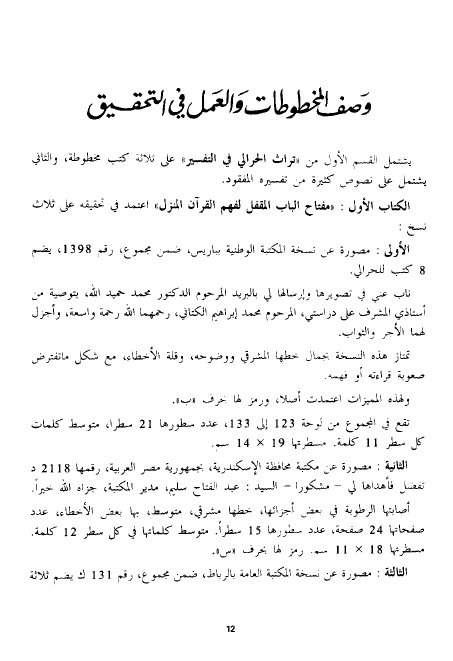 وصف المخطوطات والعمل في التحقيق
يشتمل القسم الأول من «تراث الحرالي في التفسير» على ثلاثة كتب مخطوطة، والثاني
يشتمل على نصوص كثيرة من تفسيره المفقود.
الكتاب الأول : «مفتاح الباب المقفل لفهم القرآن المنزل» اعتمد في تحقيقه على ثلاث
نسخ :
الأولى : مصورة عن نسخة المكتبة الوطنية بباريس، ضمن مجموع، رقم 1398، يضم
8 كتب للحرالي.
ناب عني في تصويرها وإرسالها لي بالبريد المرحوم الدكتور محمد حميد الله، بتوصية من
أستاذي المشرف على دراستي، المرحوم محمد إبراهيم الكتاني، رحمهما الله رحمة واسعة، وأجزل
لهما الأجر والثواب.
تمتاز هذه النسخة بجمال خطها المشرقي ووضوحه، وقلة الأخطاء، مع شكل ماتفترض
صعوبة قراءته أو فهمه.
ولهذه المميزات اعتمدت أصلا، ورمز لها بحرف «ب».
تقع في المجموع من لوحة 123 إلى 133، عدد سطورها 21 سطرا، متوسط كلمات
كل سطر 11 كلمة. مسطرتها 19 × 14 سم.
الثانية : مصورة عن مكتبة محافظة الإسكندرية، بجمهورية مصر العربية، رقمها 2118 د
تفضل فأهداها لي – مشكورا – السيد : عبد الفتاح سليم، مدير المكتبة، جزاه الله خيراً.
أصابتها الرطوبة في بعض أجزائها، خطها مشرقي، متوسط، بها بعض الأخطاء، عدد
صفحاتها 24 صفحة، عدد سطورها 15 سطراً. متوسط كلماتها في كل سطر 12 كلمة.
مسطرتها 18 × 11 سم. رمز لها بحرف «س».
الثالثة : مصورة عن نسخة المكتبة العامة بالرباط، ضمن مجموع، رقم 131 ك يضم ثلاثة
12